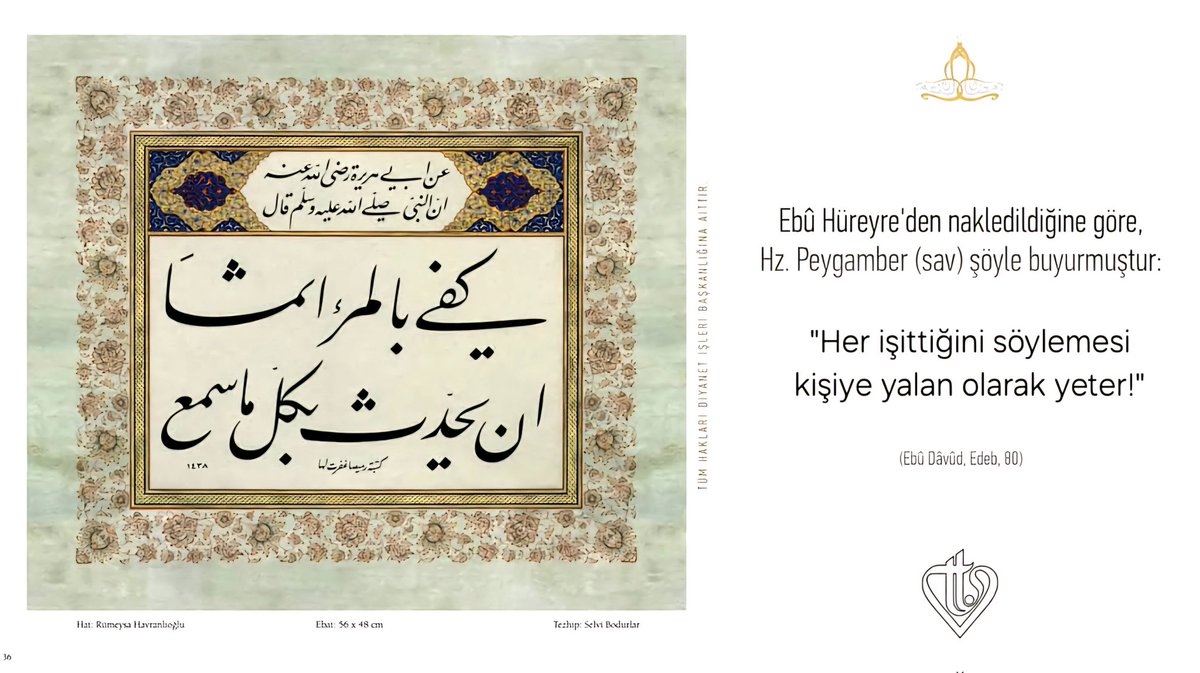 عن ابي هريرة رضى الله عنه
ان النبى صلى الله عليه وسلم قال
كفى بالمرء اثمًا
ان يحدّث بكلّ ما سمع
١٤٣٨
Hat: Rümeysa Havranlıoğlu
Ebat: 56 x 48 cm
Tezhip: Selvi Bodurlar
36
TÜM HAKLARI DİYANET İŞLERİ BAŞKANLIĞINA AİTTİR.
Ebû Hüreyre'den nakledildiğine göre,
Hz. Peygamber (sav) şöyle buyurmuştur:
"Her işittiğini söylemesi
kişiye yalan olarak yeter!"
(Ebû Dâvûd, Edeb, 80)